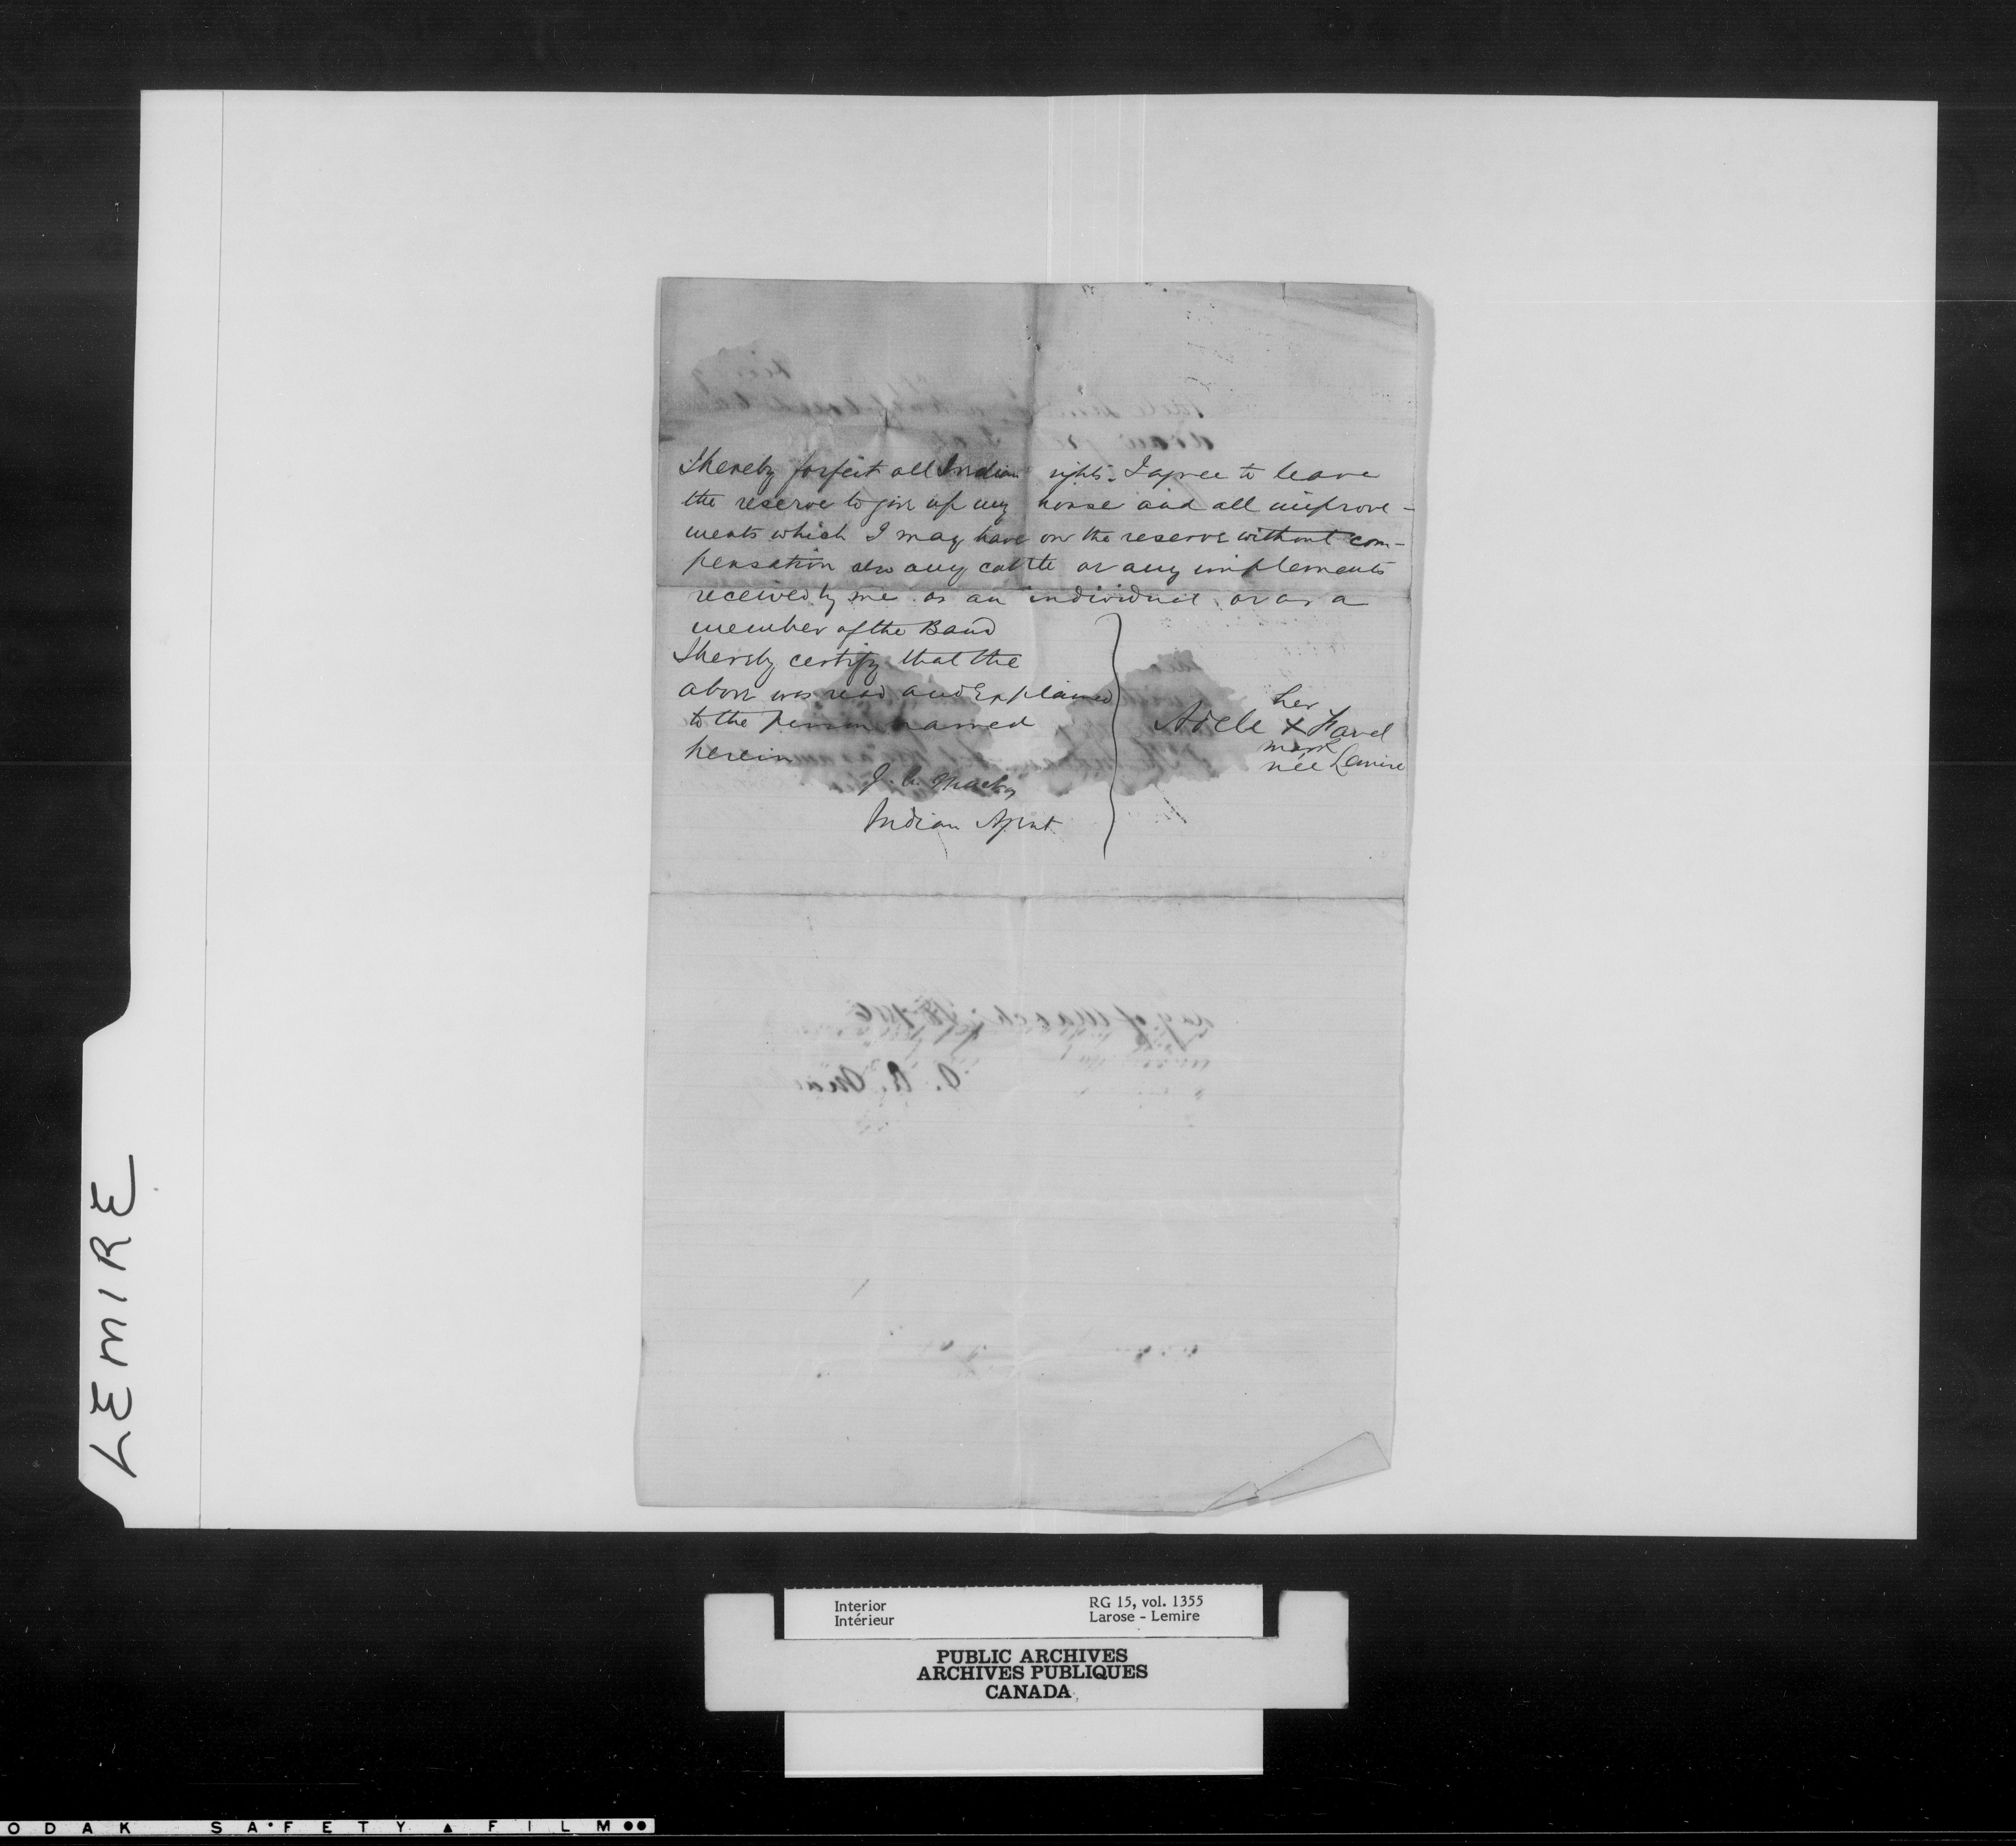 I hereby forfeit all Indian rights. I agree to leave
the reserve to give up my house and all improve-
ments which I may have on the reserve without com-
pensation also any cattle or any implements
received by me as an individual or as a
member of the Band
I hereby certify that the
above was read and Explained
to the person named
herein
J. A. Mackay
Indian Agent
her
Adele X Favel
mark
née Lemire
LEMIRE
Interior
Intérieur
RG 15, vol. 1355
Larose - Lemire
PUBLIC ARCHIVES
ARCHIVES PUBLIQUES
CANADA
ODAK SAFETY FILM